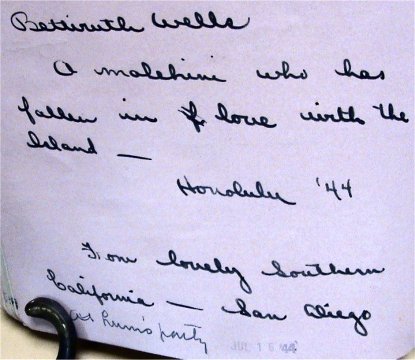 Bettiruth Wells
A malehini who has
fallen in love with the
Island —
Honolulu '44
From lovely Southern
California — San Diego
at party
JUL 16 '44